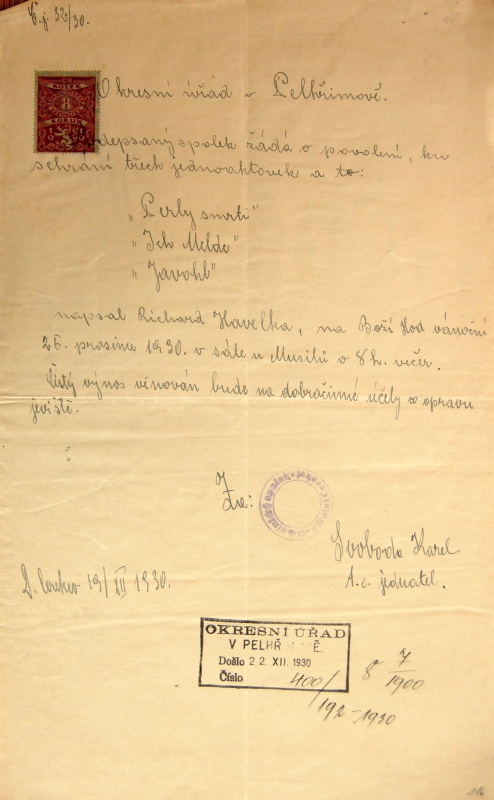 Č.j. 32/30.
KOLEK
8
KORUN
Okresní úřad v Pelhřimově.
odepsaný spolek žádá o povolení, ku
sehrání třech jednoaktovek a to:
„Perly smrti"
„Ich Melde"
„Javohl"
napsal Richard Havelka, na Boží Hod vánoční
25. prosince 1930. v sále u Musilů o 8 h. večer.
Čistý výnos věnován bude na dobročinné účely a opravu
jeviště.
Za:
Svoboda Karel
t.č. jednatel.
D. Cerekev 19/XII 1930.
OKRESNÍ ÚŘAD
V PELHŘ Ě.
Došlo 22 XII. 1930
Číslo 400/
192-1930
8 7/1900